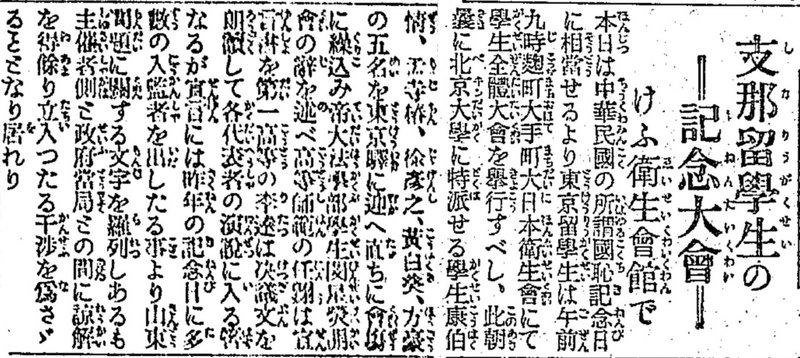 支那留學生の
＝記念大會＝
けふ衛生會館で
本日は中華民國の所謂國恥記念日
に相當せるより東京留學生は午前
九時麹町大手町大日本衛生會にて
學生全體大會を舉行すべし、此朝
曩に北京大學に特派せる學生康伯
情、孟壽椿、徐彥之、黄日葵、方豪
の五名を東京驛に迎へ直ちに會場
に繰込み帝大法學部學生閔星熒開
會の辭を述べ高等師範の任翊は宣
言書を第一高等の李達は決議文を
朗讀して各代表者の演説に入る筈
なるが宣言には昨年の記念日に多
數の入監者を出したる事より山東
問題に關する文字を羅列しあるも
主催者側と政府當局との間に諒解
を得餘り立入つたる干渉を爲さゞ
ることとなり居れり